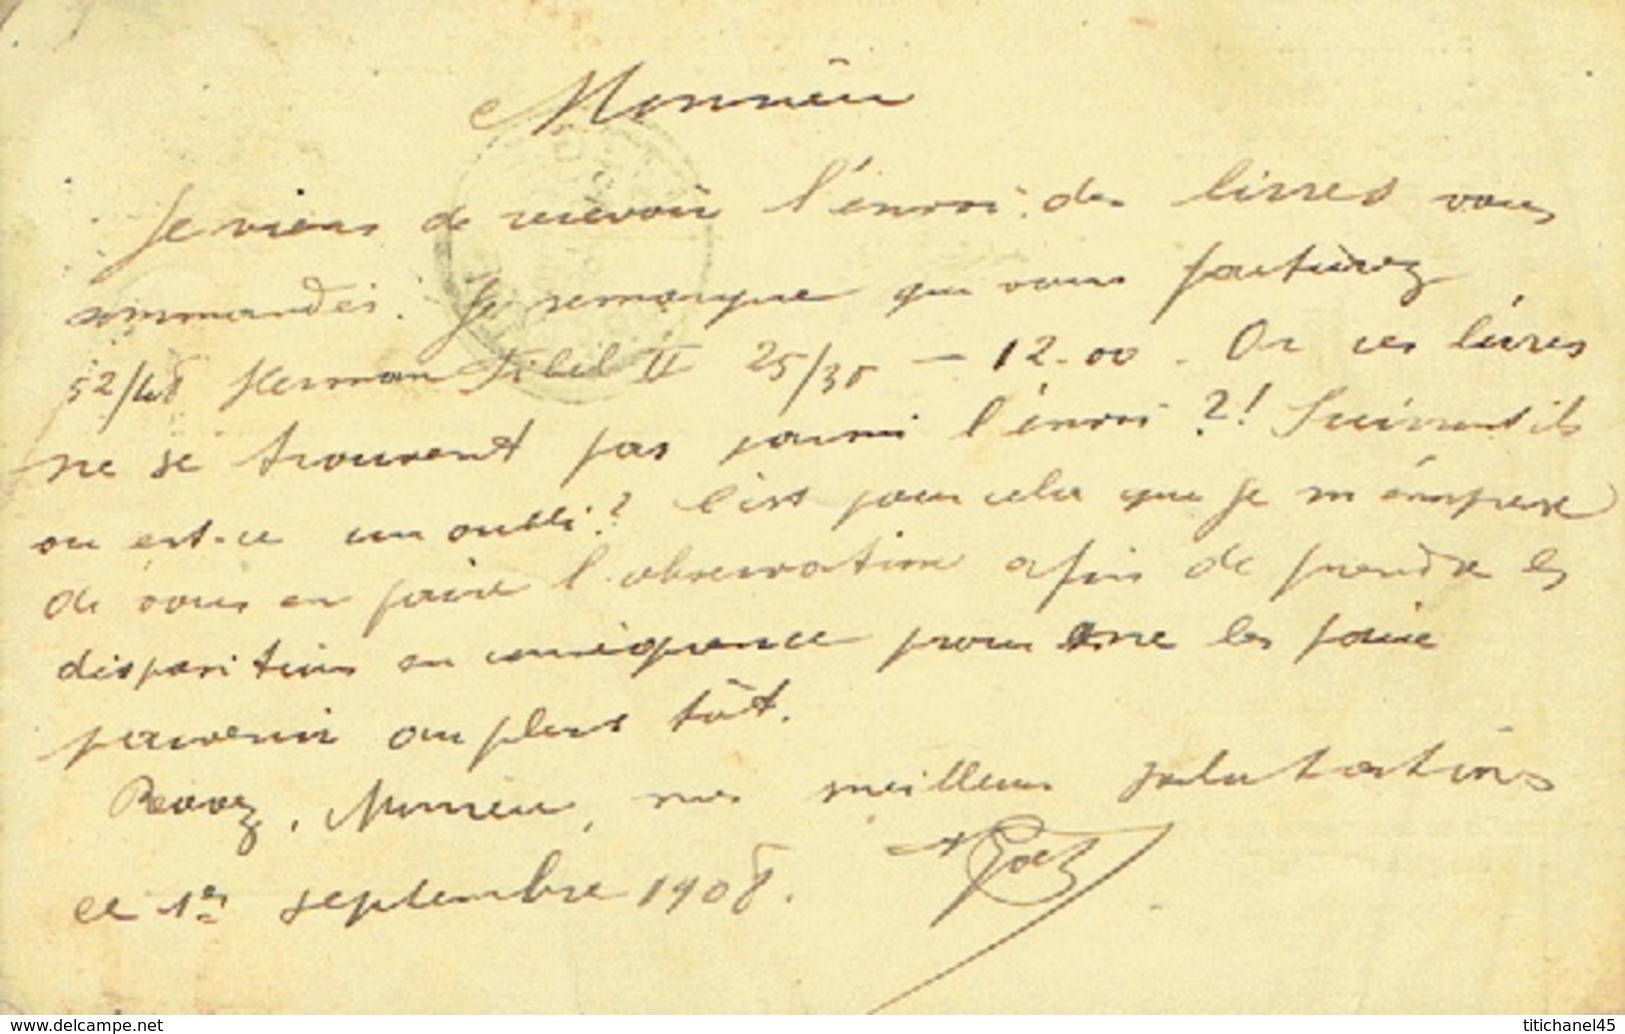 Monsieur
Je viens de recevoir l'envoi des livres vous
commandés. Je remarque que vous facturez
52/48 Herman Fibel II 25/30 — 12.00. Or ces livres
ne se trouvent pas parmi l'envoi?! Suivront ils
ou est-ce un oubli? C'est pour cela que je m'empresse
de vous en faire l'observation afin de prendre les
dispositions en conséquence pour me les faire
parvenir au plus tôt.
Recevez, Monsieur, mes meilleures salutations
ce 1er septembre 1908.
delcampe.net
titichanel45